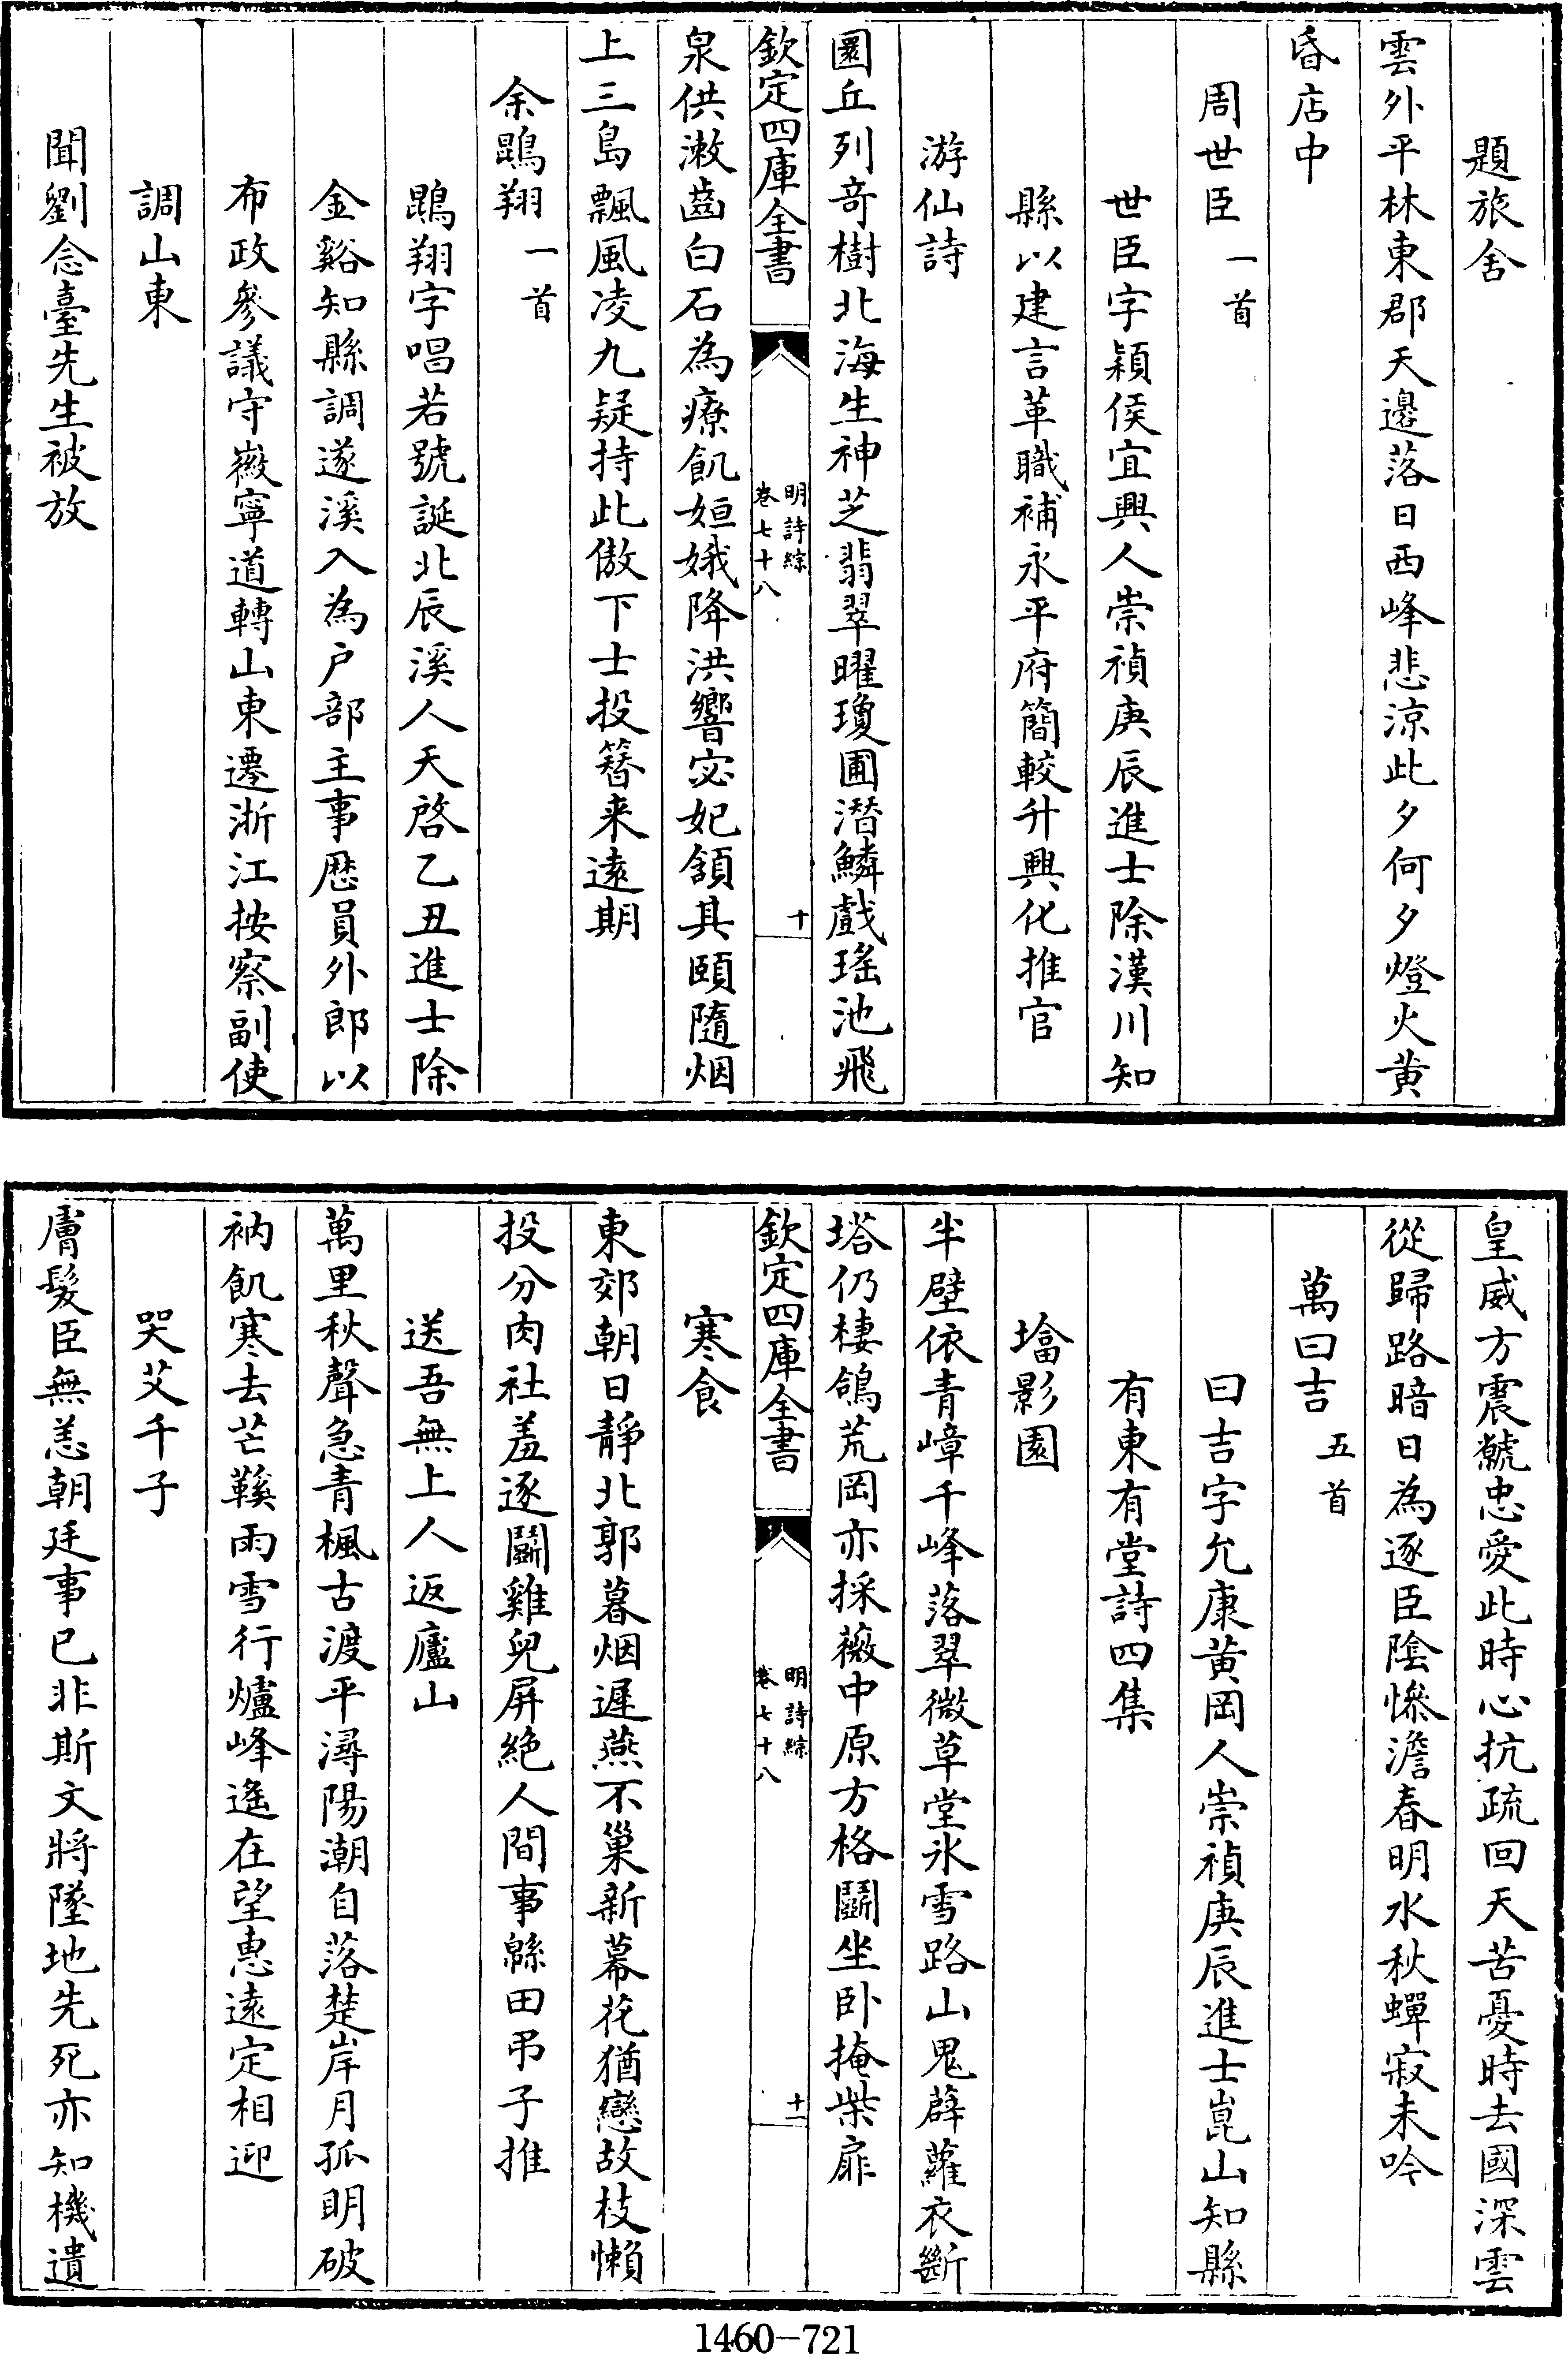 題旅舍
雲外平林東郡天邊落日西峰悲涼此夕何夕燈火黄
昏店中
周世臣一首
世臣字穎侯宜興人崇禎庚辰進士除漢川知
縣以建言革職補永平府簡較升興化推官
游仙詩
圜丘列奇樹北海生神芝翡翠曜瓊圃潜鱗戲瑤池飛
欽定四庫全書
明詩綜
卷七十八
十
泉供漱齒白石為療飢姮娥降洪響宓妃頷其頤隨烟
上三島飄風凌九疑持此傲下士投簮来遠期
余鵾翔一首
鵾翔字唱若號誕北辰溪人天啓乙丑進士除
金谿知縣調遂溪入為户部主事歴員外郎以
布政參議守嶶寧道轉山東遷浙江按察副使
調山東
聞劉念臺先生被放
皇威方震虩忠愛此時心抗疏回天苦憂時去國深雲
從歸路暗日為逐臣陰慘澹春明水秋蟬寂未吟
萬曰吉五首
曰吉字允康黄岡人崇禎庚辰進士崑山知縣
有東有堂詩四集
墖影園
半壁依青嶂千峰落翠微草堂氷雪路山鬼薜蘿衣斷
塔仍棲鴿荒岡亦採薇中原方格鬭坐卧掩柴扉
欽定四庫全書
明詩綜
卷七十八
十一
寒食
東郊朝日靜北郭暮烟遲燕不巢新幕花猶戀故枝懶
投分肉社羞逐鬭雞兒屏絶人間事緜田弔子推
送吾無上人返廬山
萬里秋聲急青楓古渡平潯陽潮自落楚岸月孤明破
衲飢寒去芒鞵雨雪行爐峰遙在望惠遠定相迎
哭艾千子
膚髮臣無恙朝廷事已非斯文將墜地先死亦知機遺
1460-721